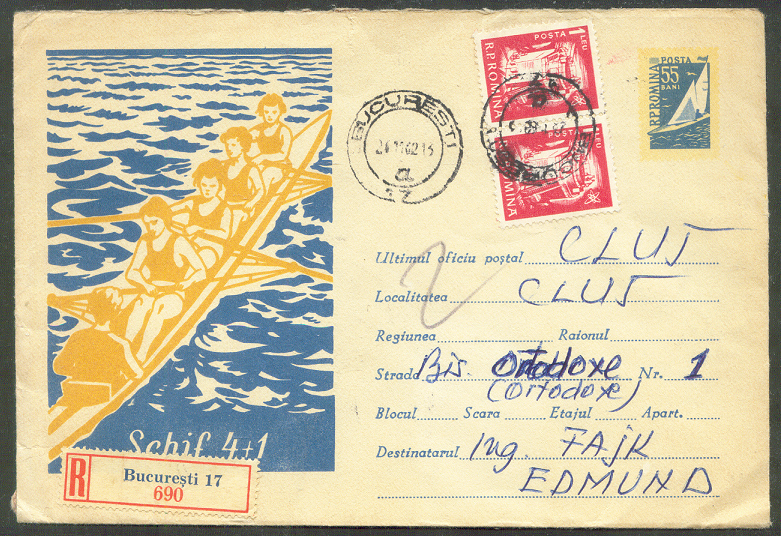 POSTA 1 LEU
R.P.ROMINA
POSTA
R.P.ROMINA
POSTA
55
BANI
RPROMINA
BUCUREȘTI
Ultimul oficiu poștal CLUJ
Localitatea CLUJ
Regiunea Raionul
Strada Bis. Ortodoxe Nr. 1
(Ortodoxe)
Blocul Scara Etajul Apart.
Destinatarul Ing. FAJK
EDMUND
Schif 4+1
R
București 17
690